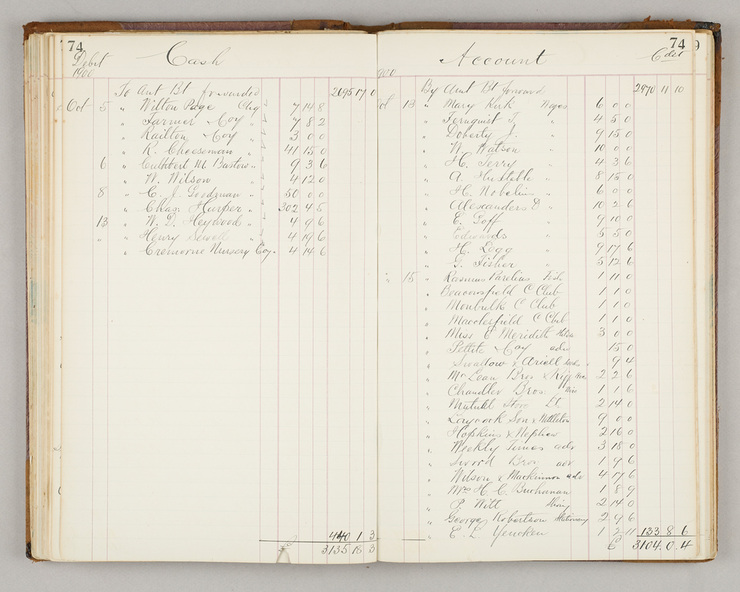 74
Debit
1900
Cash
To Amt Bt forwarded 2695 17 0
Oct 5 " Wilton Page Chq 7 14 8
" Farmer & Coy " 7 8 2
" Railton & Coy " 3 0 0
" R. Cheeseman " 41 15 0
6 " Cuthbert Mt Barlow " 9 3 6
" W. Wilson " 4 12 0
8 " C. J. Goodman " 50 0 0
" Chas Harper " 302 4 5
13 " W. G. Heywood " 4 9 6
" " Henry 4 19 6
" Cremorne Nursery Coy. 4 14 6
440 1 3
£ 3135 18 3
Account
74
Cdit
1900
By Amt Bt forward 2970 11 10
Oct 13 " Mary Kirk Wages 6 0 0
" Fernquist T. " 4 5 0
" Doherty J. " 9 15 0
" W. Watson " 10 0 0
" H. Terry " 4 3 6
" A " 8 15 0
" H. Nobelius " 6 0 0
" Alexanders E " 10 2 6
" E. Goff " 9 10 0
" Edwards " 5 5 0
" H. Legg " 9 17 6
" G. Fisher " 5 12 6
" 15 " Rasmus 1 11 0
" Beaconsfield C Club 1 1 0
" Monbulk C Club 1 1 0
" Macclesfield C. Club 1 1 0
" Miss E Meredith 3 0 0
" Pettit & Coy adv 15 0
" Swallow & Ariell 9 4
" McLean Bros & Rigg 2 2 6
" Chandler Bros 1 1 6
" Mutual Store Ld 2 14 0
" Laycock Son & Nettleton 9 0 0
" Hopkins & Nephew 2 16 0
" Weekly Times adv 3 18 0
" Bros adv 1 9 6
" Wilson & Mackinnon adv 4 17 6
" Mrs H. C. Buchanan 1 8 9
" P. Witt 2 14 0
" George Robertson Stationery 2 9 6
" E. L. Yencken 1 2 11 133 8 6
£ 3104 0 4